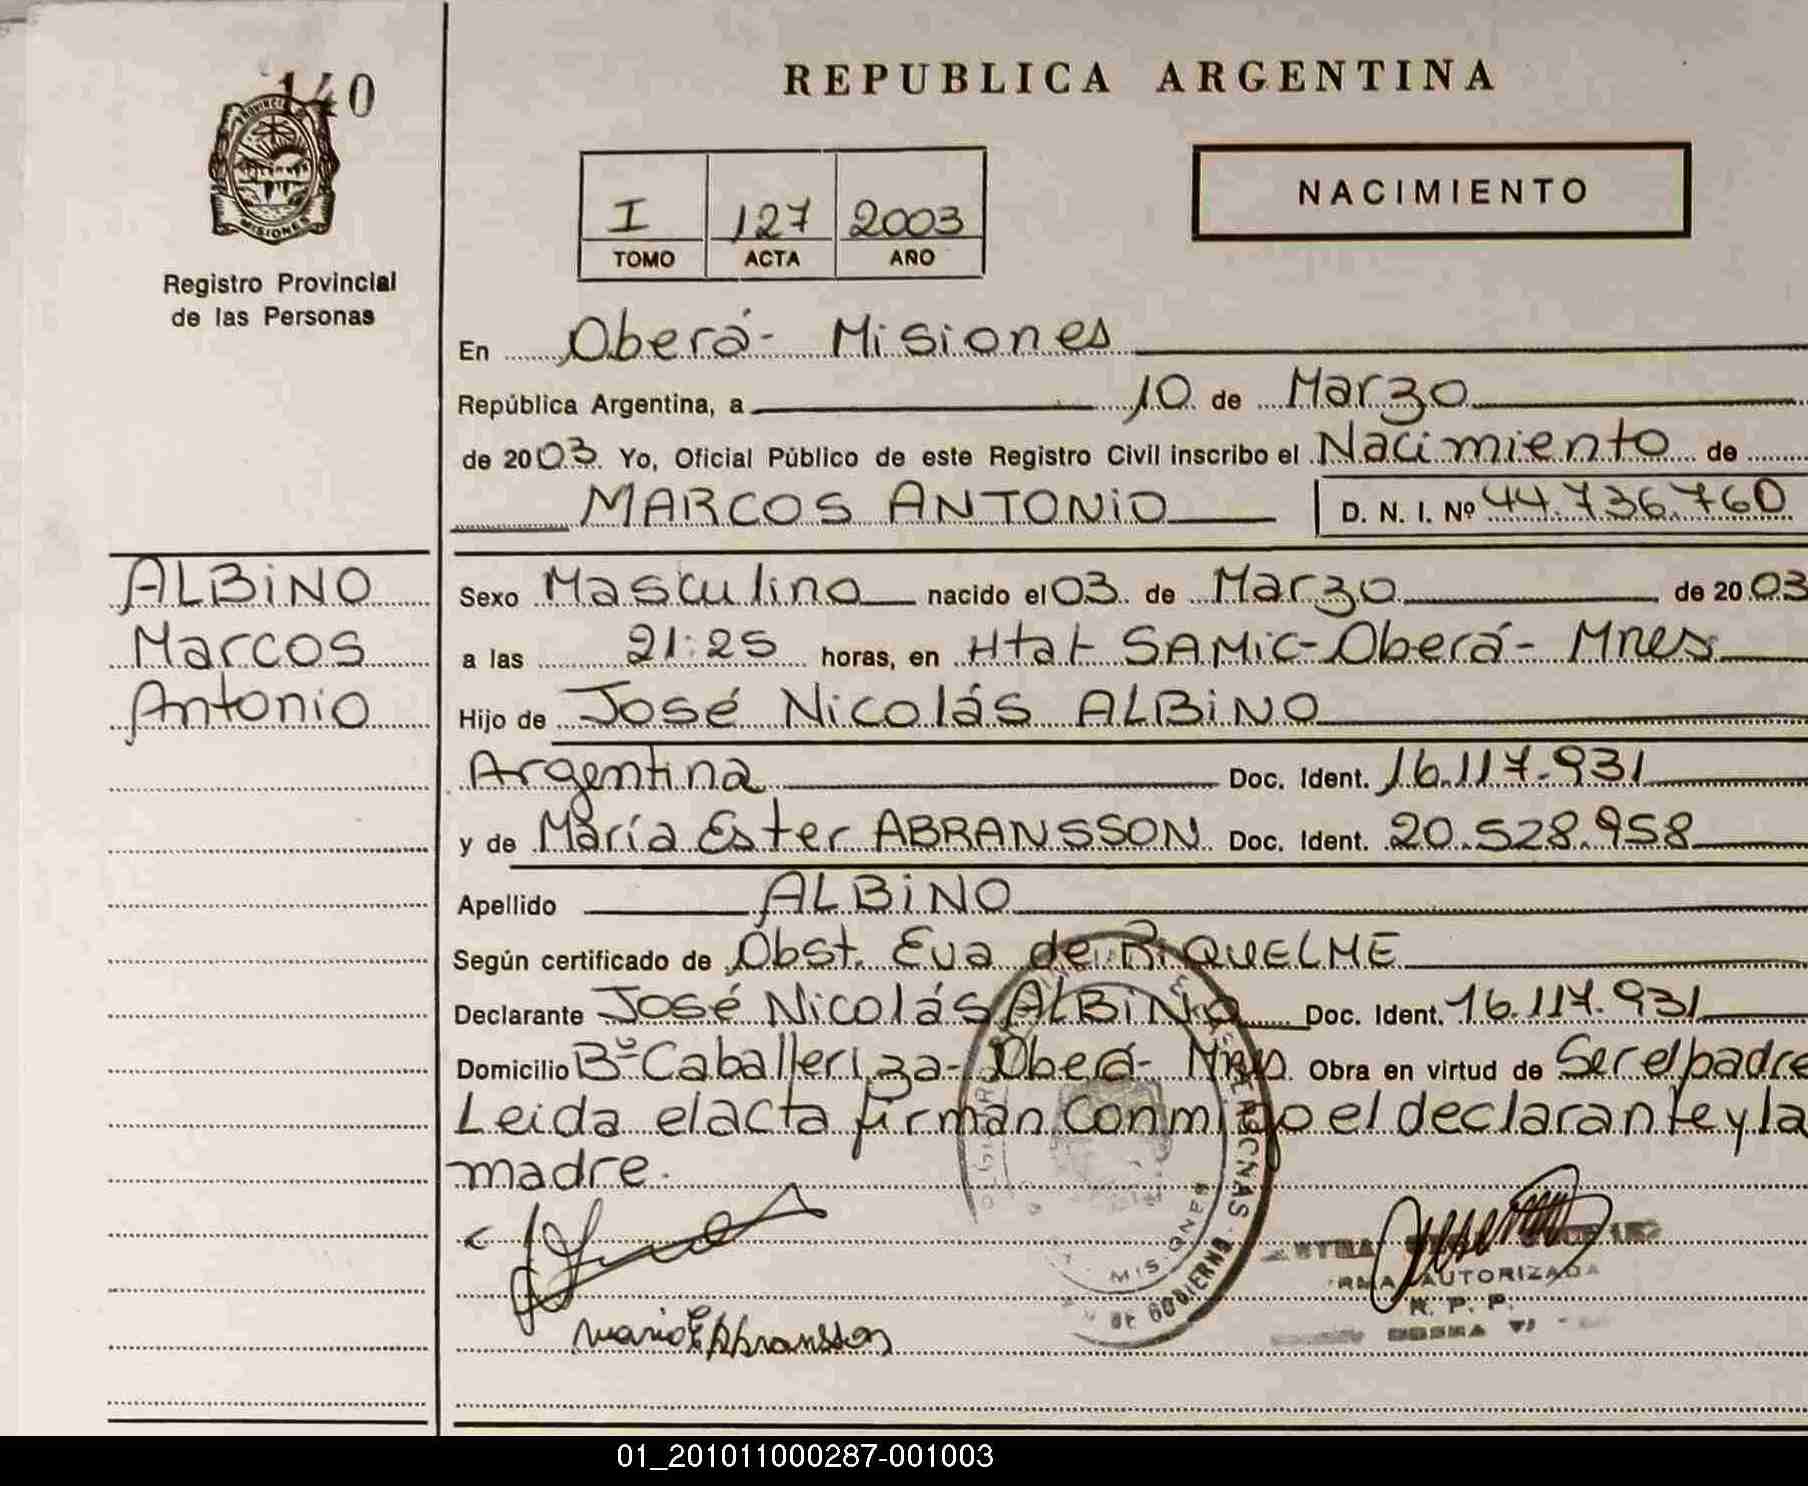 140
PROVINCIA
MISIONES
Registro Provincial
de las Personas
REPUBLICA ARGENTINA
I 127 2003
TOMO ACTA AÑO
NACIMIENTO
En Oberá- Misiones
República Argentina, a 10 de Marzo
de 2003. Yo, Oficial Público de este Registro Civil inscribo el Nacimiento de
MARCOS ANTONiO D. N. I. Nº 44.736.760
ALBiNO
Marcos
Antonio
Sexo Masculino nacido el 03 de Marzo de 2003
a las 21:25 horas, en Htal SAMiC-Oberá- Mnes
Hijo de José Nicolás ALBiNO
Argentina Doc. Ident. 16.117.931
y de María Ester ABRANSSON Doc. Ident. 20.528.958
Apellido ALBiNO
Según certificado de Obst. Eva de RiQUELME
Declarante José Nicolás ALBiNO Doc. Ident. 16.117.931
Domicilio Bº Caballeriza- Oberá- Mnes Obra en virtud de Ser el padre
Leida el acta firman conmigo el declarante y la
madre.
MISIONES
GOBIERNO
Maria E Abransson
AUTORIZADA
R. P. P.
01_201011000287-001003